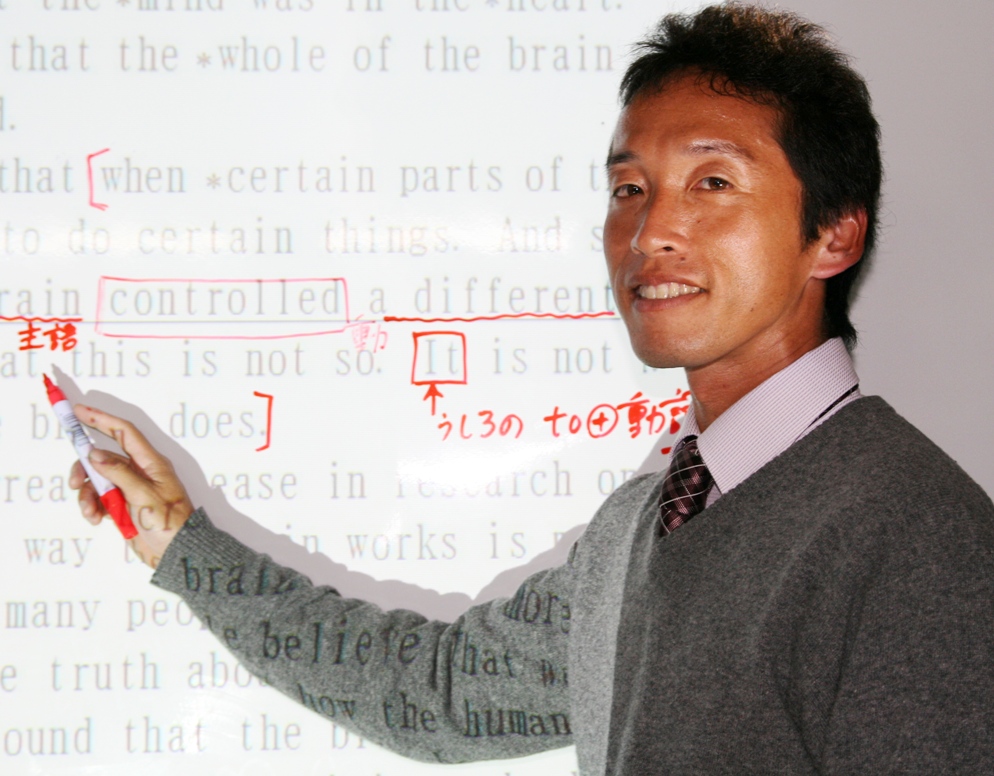 the *mind was in the *heart.
that the *whole of the brain
d.
that [when *certain parts of
to do certain things. And
rain controlled a different
主語 動
at this is not so. It is not
does.]
うしろの to⊕動
ease in research
way works is
brain
many more
believe that
e truth
how the human
ound that the